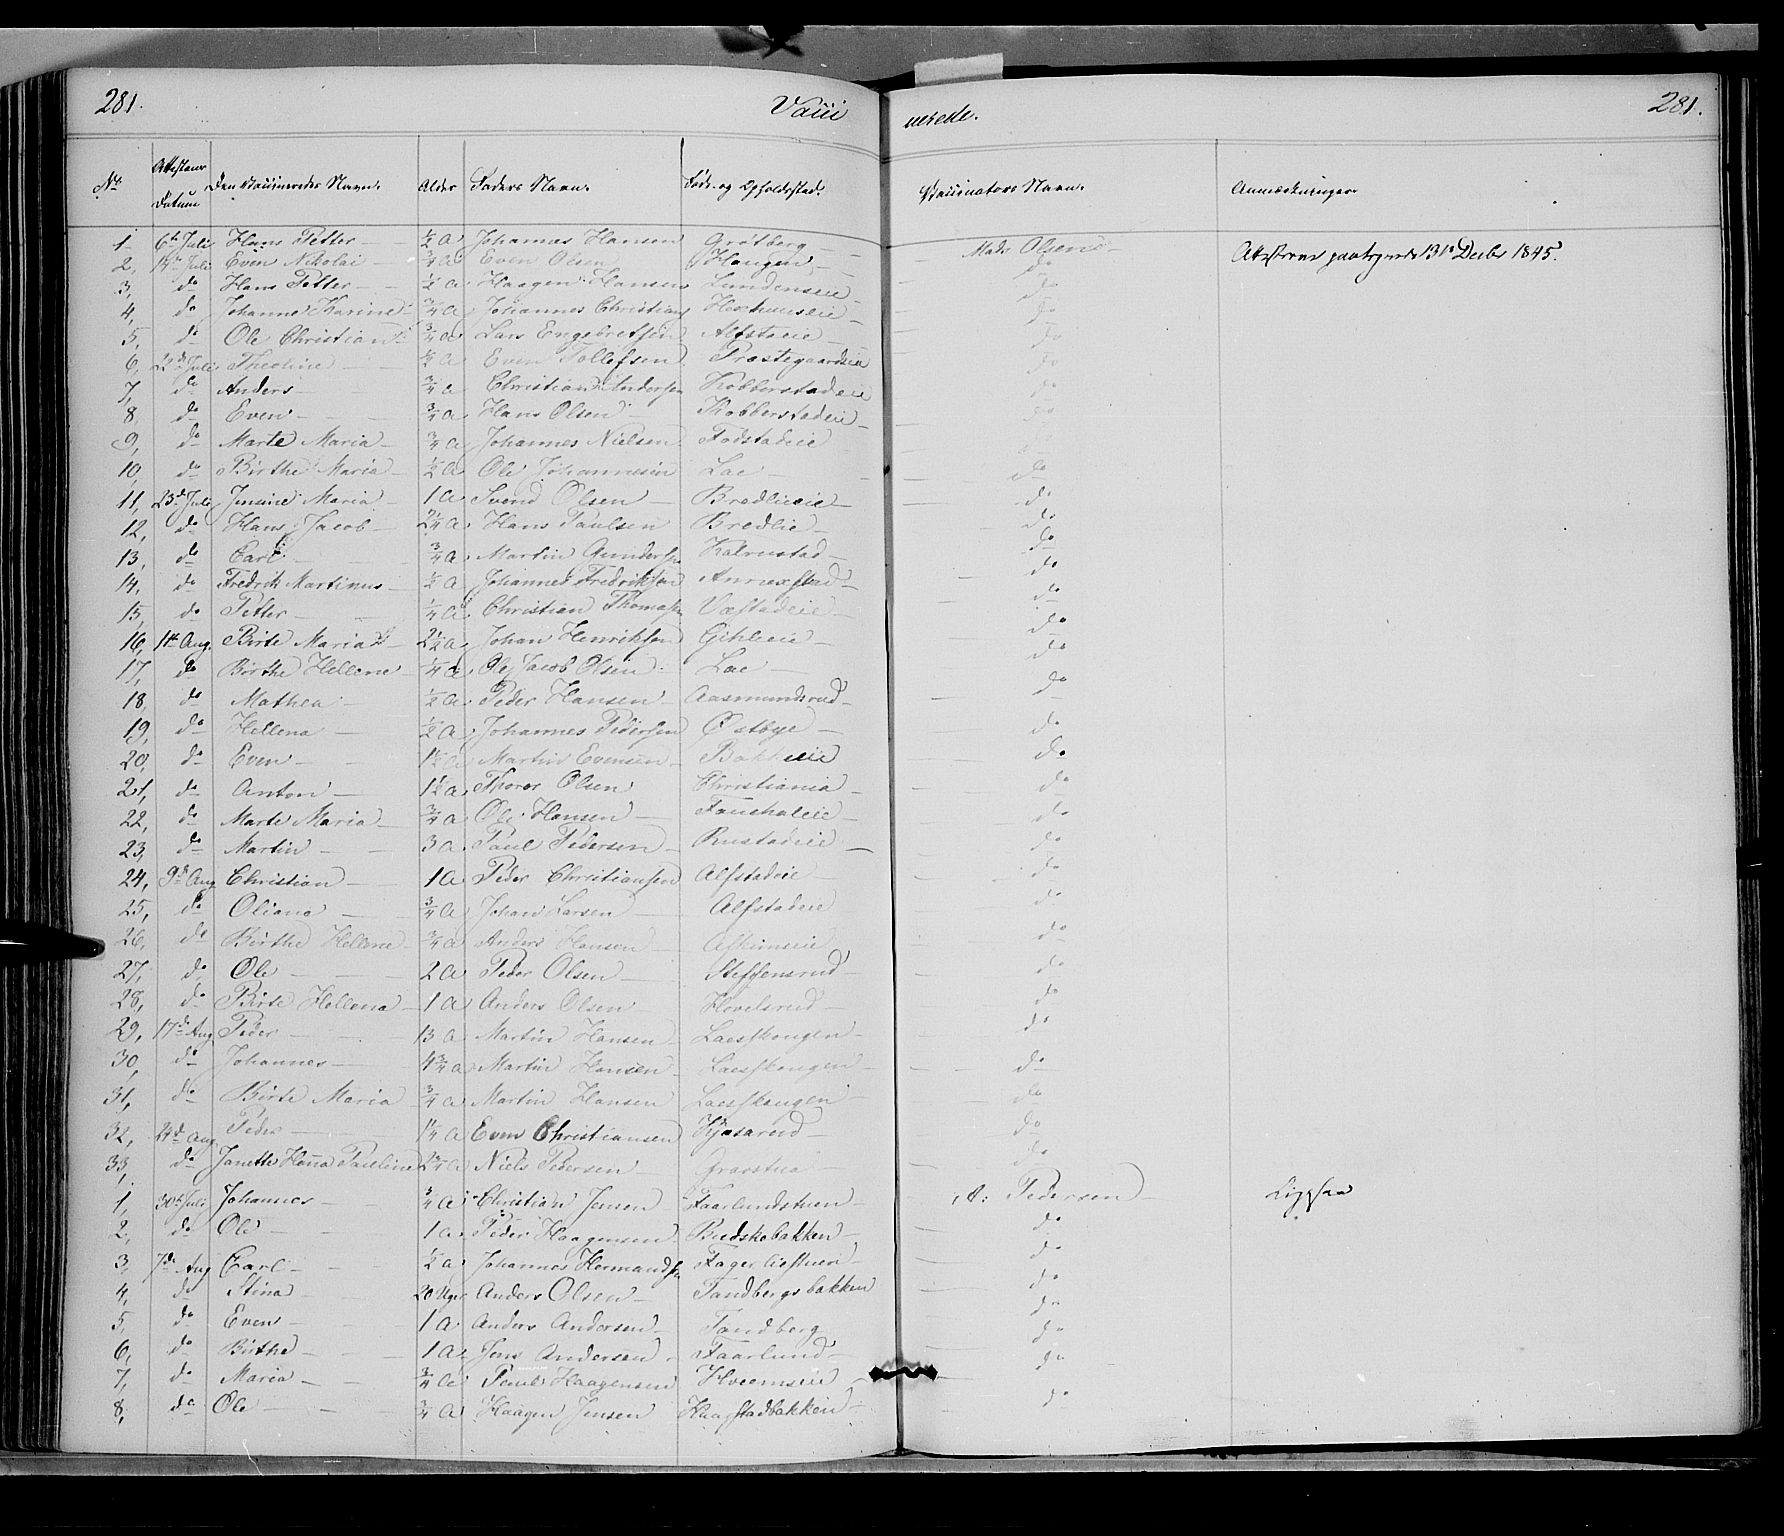 281. Vacci nerede. 281.
No. Attestens Datum Den Vaccineredes Navn. Alder Faders Navn. Føde- og Opholdssted. Vaccinators Navn. Anmærkninger
1 6te Juli Hans Petter 1/2 a Johannes Hansen Grøtberg Mads Olsen Attesterne paategnede 31te Decbr 1845.
2, 14de Juli Even Nikolai 3/4 a Even Olsen Haugen do
3, do Hans Petter 1/2 a Haagen Hansen Lundenseie do
4, do Johanne Karine 3/4 a Johannes Christians do
5, do Ole Christian 3/4 a Lars Engebretsen Alfstaeie do
6, 22de Juli Theoline 1/2 a Even Tollefsen Præstegaardseie do
7, do Anders 3/4 a Christian Andersen Kobberstadeie do
8, do Even 3/4 a Hans Olsen Kobberstadeie do
9, do Marte Maria 3/4 a Johannes Nielsen Fodstadeie do
10, do Birthe Maria 1/2 a Ole Johannesen Lae do
11, 23de Juli Jensine Maria 1 a Svend Olsen Bredlieeie do
12, do Hans Jacob 2 1/4 a Hans Paulsen Bredlie do
13, do Carl 3/4 a Martin Gundersen Kalrustad do
14, do Fredrik Martinus 1/2 a Johannes Fredriksen Annexstad do
15, do Petter 1/4 a Christian Thomasen Væstadeie do
16, 1ste Aug. Birte Maria 2 1/2 a Johan Henriksen Gihleeie do
17, do Birthe Hellene 1/4 a Ole Jacob Olsen Lae do
18, do Mathea 1/2 a Peder Hansen Aasmundsrud do
19, do Hellena 1/2 a Johannes Pedersen Østbye do
20, do Even 1 1/2 a Martin Evensen Bakkeeie do
21, do Anton 1 1/2 a Thorer Olsen Christiania do
22, do Marte Maria 3/4 a Ole Hansen Fauchaleie do
23, do Martin 3 a Paul Pedersen Rustadeie do
24, 9de Aug Christian 1 a Peder Christiansen Alfstadeie do
25, do Oliana 3/4 a Johan Larsen Alfstadeie do
26, do Birthe Hellene 3/4 a Anders Hansen Askimseie do
27, do Ole 2 a Peder Olsen Steffensrud do
28, do Birte Hellena 1 a Anders Olsen Hovelsrud do
29, 17de Aug Peder 13 a Martin Hansen Laeskougen do
30, do Johannes 4 3/4 a Martin Hansen Laeskougen do
31, do Birte Maria 3/4 a Martin Hansen Laeskougen do
32, 24de Aug Peder 1 1/4 a Even Christiansen Kjøsarud do
33, do Janette Hana Pauline 2 3/4 a Niels Pedersen Gravstua do
1, 30te Juli Johannes 3/4 a Christian Jensen Faarlundstuen A: Pedersen Ligesaa
2, do Ole 1 a Peder Haagensen Budskebakken do
3, 7de Aug Carl 1/2 a Johannes Hermandsen Fagerliestuen do
4, do Stina 20 Uger Anders Olsen Tandbergsbakken do
5, do Even 1 a Anders Andersen Tandberg do
6, do Birthe 1 a Jens Andersen Faarlund do
7, do Maria 3/4 a Paul Haagensen Hveemseie do
8, do Ole 3/4 a Haagen Jensen Haagstadbakken do